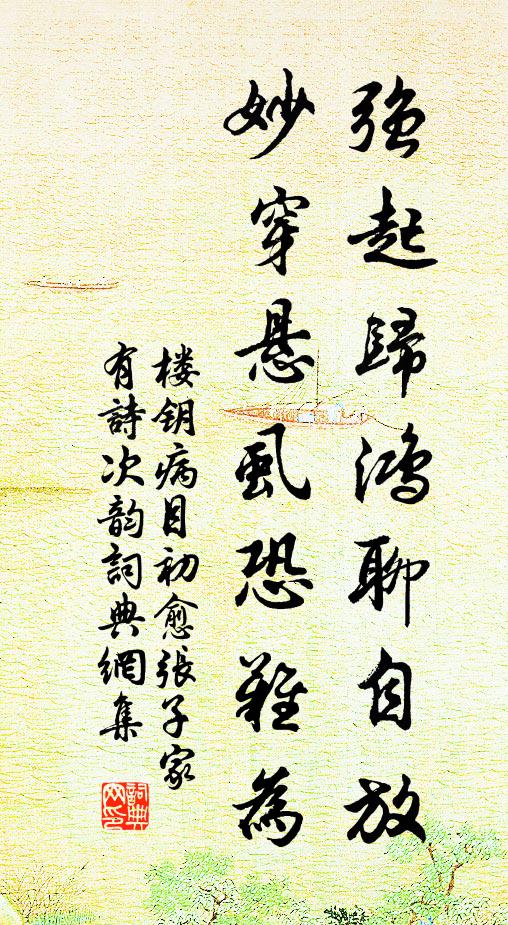 强起歸鴻聊自放
妙穿悬虱恐難為
楼钥病目初愈張子家
有詩次韵詞典網集
詞典网印